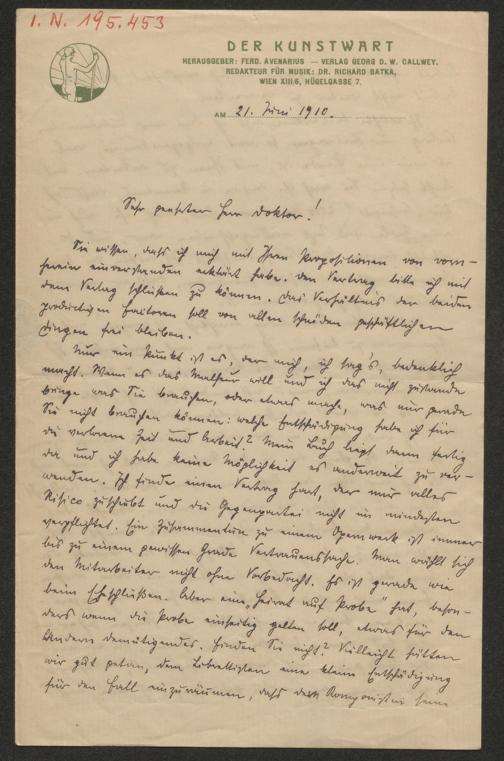 I. N. 195.453
DER KUNSTWART
HERAUSGEBER: FERD. AVENARIUS — VERLAG GEORG D. W. CALLWEY.
REDAKTEUR FÜR MUSIK: DR. RICHARD BATKA,
WIEN XIII/6, HÜGELGASSE 7.
AM 21. Juni 1910.
Sehr geehrter Herr Doktor!
Sie wissen, dass ich mich mit Ihren Propositionen von vorn-
herein einverstanden erklärt habe. Den Vertrag bitte ich mit
dem Verlag schließen zu können. Das Verhältnis der beiden
produktiven Faktoren soll von allen schnöden geschäftlichen
Dingen frei bleiben.
Nur ein Punkt ist es, der mich, ich sag's, bedenklich
macht. Wenn es das Malheur will und ich das nicht zustande
bringe was Sie brauchen, oder etwas mache, was nur gerade
Sie nicht brauchen können: welche Entschädigung habe ich für
die verlorene Zeit und Arbeit? Mein Buch liegt dann fertig
da und ich habe keine Möglichkeit es anderweit zu ver-
wenden. Ich finde einen Vertrag hart, der mir alles
Risico zuschiebt und die Gegenpartei nicht im mindesten
verpflichtet. Ein Zusammentun zu einem Opernwerk ist immer
bis zu einem gewissen Grade Vertrauenssache. Man wählt sich
den Mitarbeiter nicht ohne Vorbedacht. Es ist gerade wie
beim Eheschließen. Aber eine „Heirat auf Probe" hat, beson-
ders wenn die Probe einseitig gelten soll, etwas für den
Andern demütigendes. Finden Sie nicht? Vielleicht hätten
wir gut getan, dem Librettisten eine kleine Entschädigung
für den Fall einzuräumen, dass dem Komponisten seine